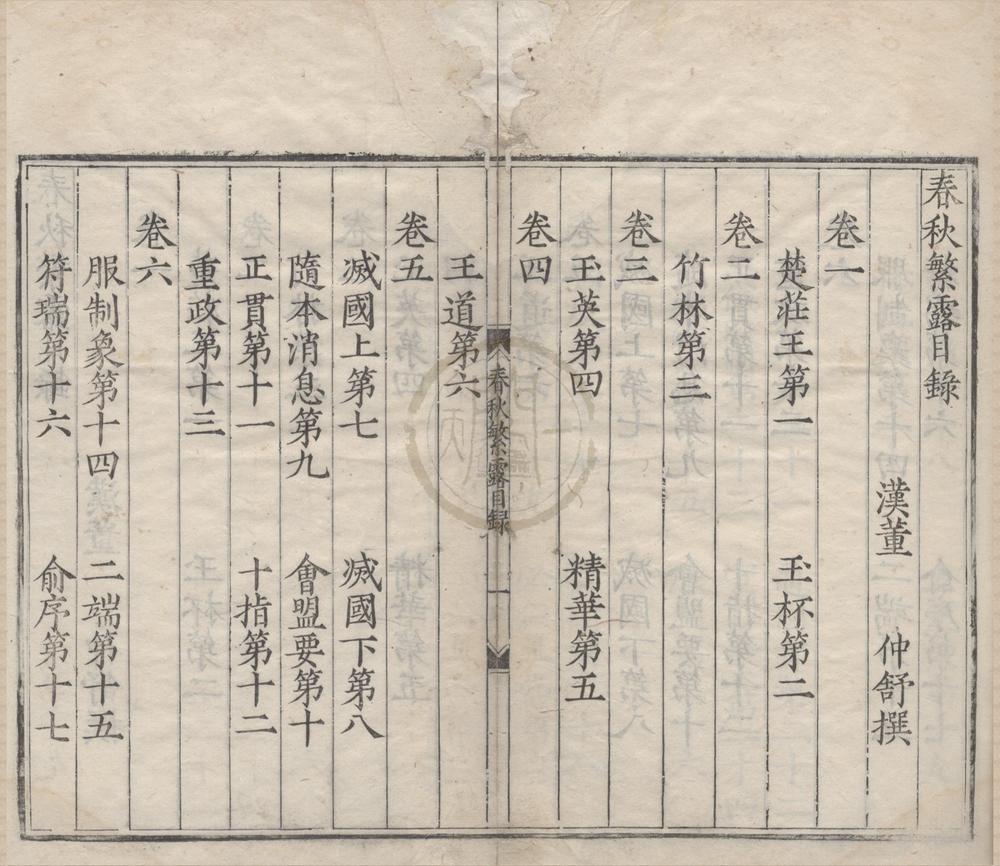 春秋繁露目錄
漢董　仲舒撰
卷一
楚莊王第一　玉杯第二
卷二
竹林第三
卷三
玉英第四　精華第五
卷四
王道第六
卷五
滅國上第七　滅國下第八
隨本消息第九　會盟要第十
正貫第十一　十指第十二
重政第十三
卷六
服制象第十四　二端第十五
符瑞第十六　俞序第十七
春秋繁露目錄　一